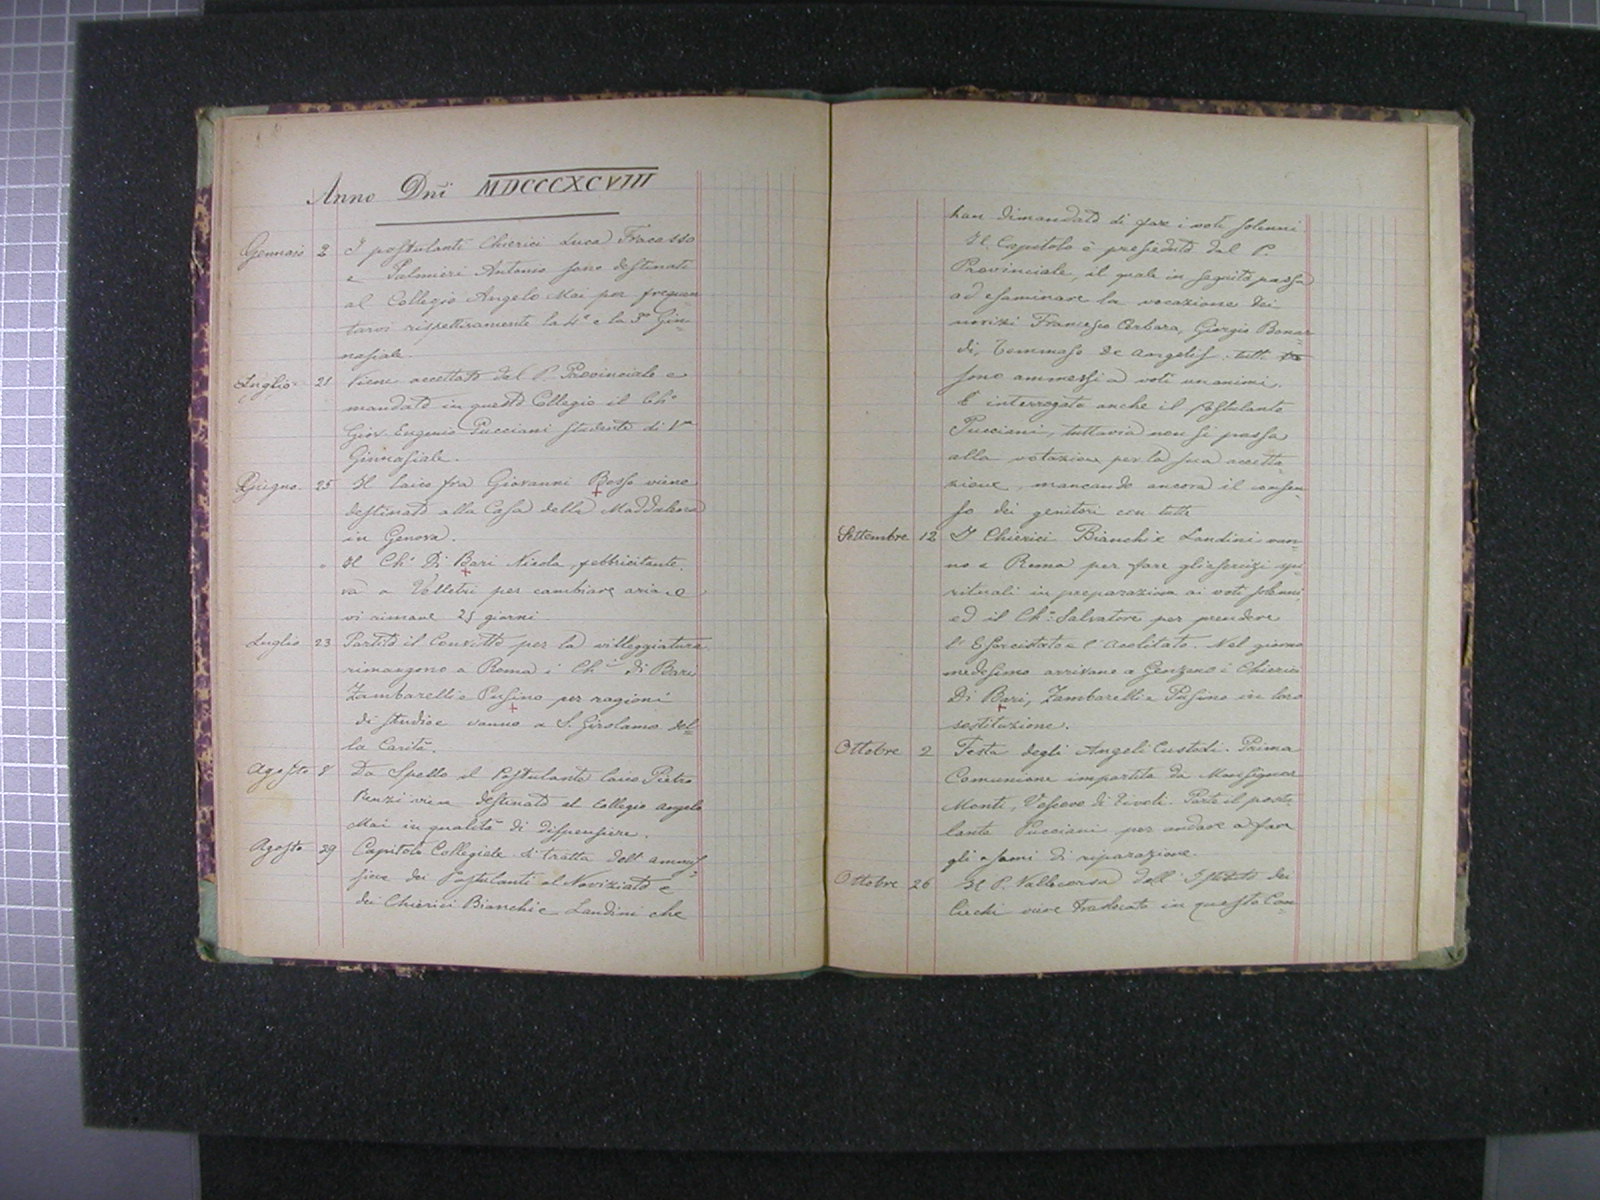 Anno Dñi MDCCCXCVIII
Gennaio 2 I postulanti Chierici Luca Fracasso
e Palmieri Antonio sono destinati
al Collegio Angelo Mai per frequen
tarvi rispettivamente la 4ª e la 3ª Gin=
nasiale.
Luglio 21 Viene accettato dal P. Provinciale e
mandato in questo Collegio il Chº
Giov. Eugenio Pucciani studente di Vª
Ginnasiale.
Giugno 25 Il laico fra Giovanni Bosso viene
destinato alla Casa della Maddalena
in Genova.
" Il Ch. Di Bari Nicola, febbricitante,
va a Velletri per cambiare aria e
vi rimane 25 giorni
Luglio 23 Partito il Convitto per la villeggiatura
rimangono a Roma i Ch. Di Bari
Zambarelli e Pusino per ragioni
di studio e vanno a S. Girolamo del=
la Carità.
Agosto 8 Da Spello il Postulante laico Pietro
Renzi viene destinato al Collegio Angelo
Mai in qualità di dispensiere.
Agosto 29 Capitolo Collegiale. Si tratta dell' ammis=
sione dei Postulanti al Noviziato e
dei Chierici Bianchi e Landini che
han dimandato di fare i voti solenni.
Il Capitolo è presieduto dal P.
Provinciale, il quale in seguito passa
ad esaminare la vocazione dei
novizi Francesco Cerbara, Giorgio Bonar
di, Tommaso De Angelis: tutti tre
sono ammessi a voti unanimi.
È interrogato anche il postulante
Pucciani, tuttavia non si passa
alla votazione per la sua accetta
zione, mancando ancora il consen=
so dei genitori con tutti
Settembre 12 I Chierici Bianchi e Landini van=
no a Roma per fare gli esercizi spi=
rituali in preparazione ai voti solenni,
ed il Ch. Salvatore per prendere
l'Esorcistato e l'Acolitato. Nel giorno
medesimo arrivano a Genzano i Chierici
Di Bari, Zambarelli e Pusino in loro
sostituzione.
Ottobre 2 Festa degli Angeli Custodi. Prima
Comunione impartita da Monsignor
Monti, Vescovo di Tivoli. Parte il postu
lante Pucciani per andare a fare
gli esami di riparazione.
Ottobre 26 Il P. Vallecorsa dell' Istituto dei
Ciechi viene traslocato in questo Con=